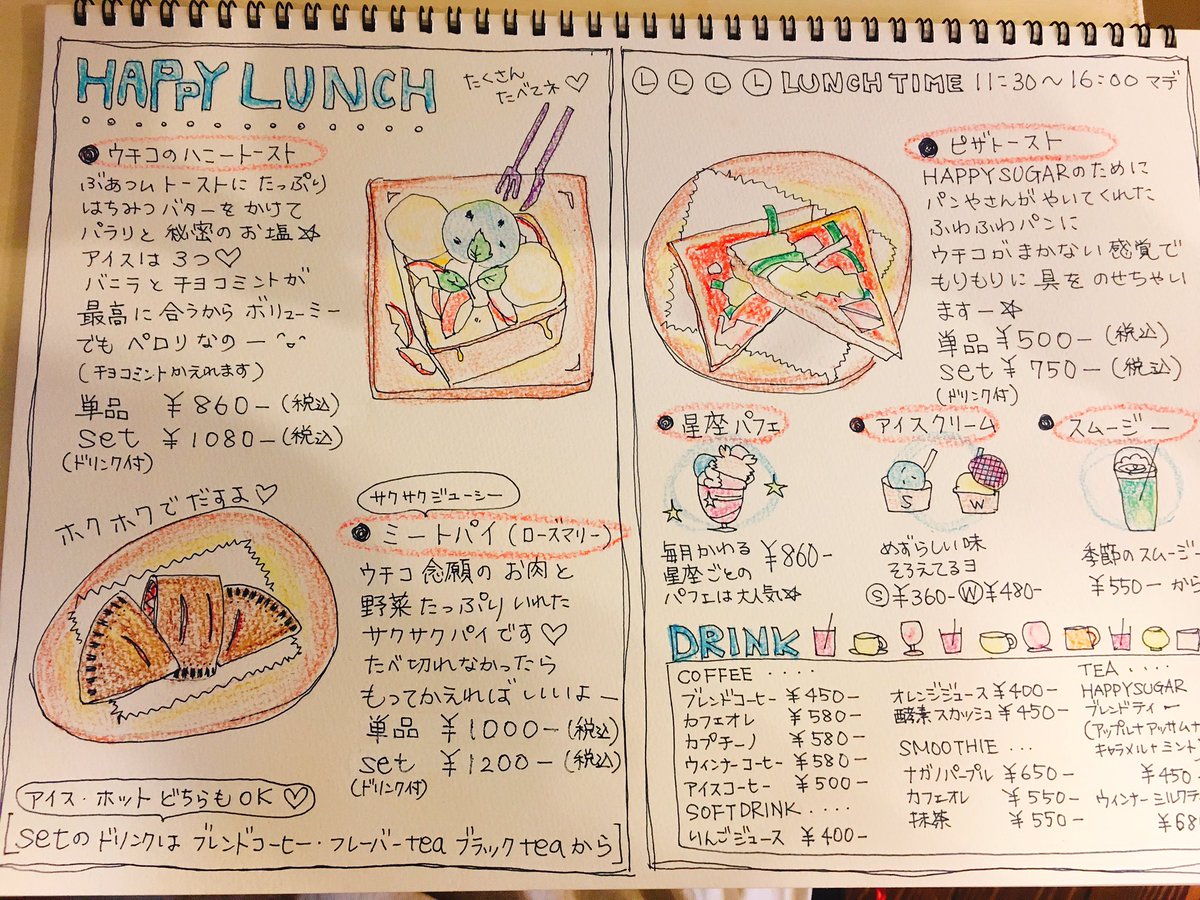 HAPPY LUNCH
たくさん
たべてネ♡
ウチコのハニートースト
ぶあつぃトーストに たっぷり
はちみつバターをかけて
パラリと秘密のお塩☆
アイスは3つ♡
バニラとチョコミントが
最高に合うから ボリューミー
でもペロリなのー
(チョコミントかえれます)
単品 ¥860-(税込)
set ¥1080-(税込)
(ドリンク付)
ホクホクでだすよ♡
サクサクジューシー
ミートパイ(ローズマリー)
ウチコ念願のお肉と
野菜たっぷりいれた
サクサクパイです♡
たべ切れなかったら
もってかえればいいよー
単品 ¥1000-(税込)
set ¥1200-(税込)
(ドリンク付)
アイス・ホットどちらもOK♡
[setのドリンクは ブレンドコーヒー・フレーバーtea ブラックteaから]
LUNCH TIME 11:30〜16:00マデ
ピザトースト
HAPPYSUGARのために
パンやさんがやいてくれた
ふわふわパンに
ウチコがまかない感覚で
もりもりに具をのせちゃい
ますー☆
単品¥500-(税込)
set¥750-(税込)
(ドリンク付)
星座パフェ
毎月かわる
星座ごとの
パフェは大人気☆
¥860-
アイスクリーム
S W
めずらしい味
そろえてるヨ
Ⓢ¥360-Ⓦ¥480-
スムージー
季節のスムージ
¥550-から
DRINK
COFFEE ....
ブレンドコーヒー ¥450-
カフェオレ ¥580-
カプチーノ ¥580-
ウィンナーコーヒー ¥580-
アイスコーヒー ¥500-
SOFTDRINK ....
りんごジュース ¥400-
オレンジジュース ¥400-
酵素スカッシュ ¥450-
SMOOTHIE ...
ナガノパープル ¥650-
カフェオレ ¥550-
抹茶 ¥550-
TEA ....
HAPPYSUGAR
ブレンドティー
(アップル+アッサム+
キャラメル+ミント
¥450-
ウィンナーミルクテ
¥68